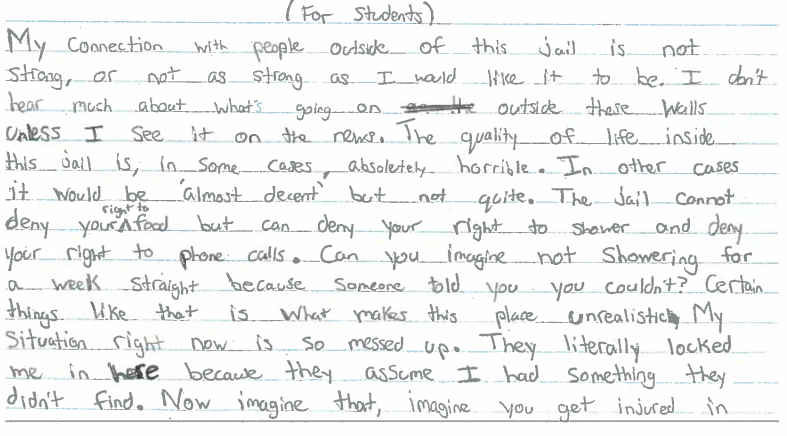 (For Students)
My Connection with people outside of this jail is not
strong, or not as strong as I would like it to be. I don't
hear much about what's going on outside these walls
unless I see it on the news. The quality of life inside
this jail is, in some cases, absolutely horrible. In other cases
it would be 'almost decent' but not quite. The jail cannot
deny your right to food but can deny your right to shower and deny
your right to phone calls. Can you imagine not showering for
a week straight because someone told you you couldn't? Certain
things like that is what makes this place unrealistic. My
situation right now is so messed up. They literally locked
me in here because they assume I had something they
didn't find. Now imagine that, imagine you get injured in